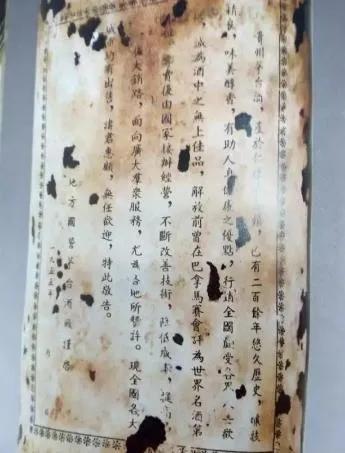 貴州茅台酒，產於仁懷茅台鎮，已有二百餘年悠久歷史，
精良，味美醇香，有助人身健康之優點，行銷全國
誠為酒中之無上佳品，解放前曾在巴拿馬賽會評為世界名酒第
由國家接辦經營，不斷改善技術，降低成本，提高
大銷路，面向廣大羣眾服務，尤為各地所讚許。現全國各大
城市均有出售，諸君惠顧，無任歡迎，特此敬告。
地方國營茅台酒廠謹啓
一九五五年 月